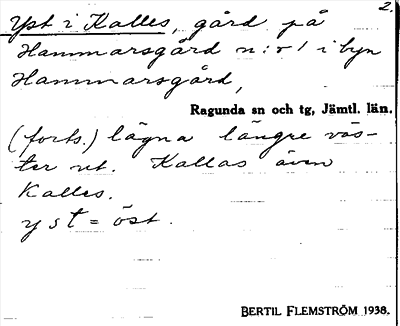 2.
Yst i Kalles, gård på
Hammarsgård n:r 1 i byn
Hammarsgård,
Ragunda sn och tg, Jämtl. län.
(forts.) lägna längre väs-
ter ut. Kallas även
Kalles.
yst = öst.
BERTIL FLEMSTRÖM 1938.